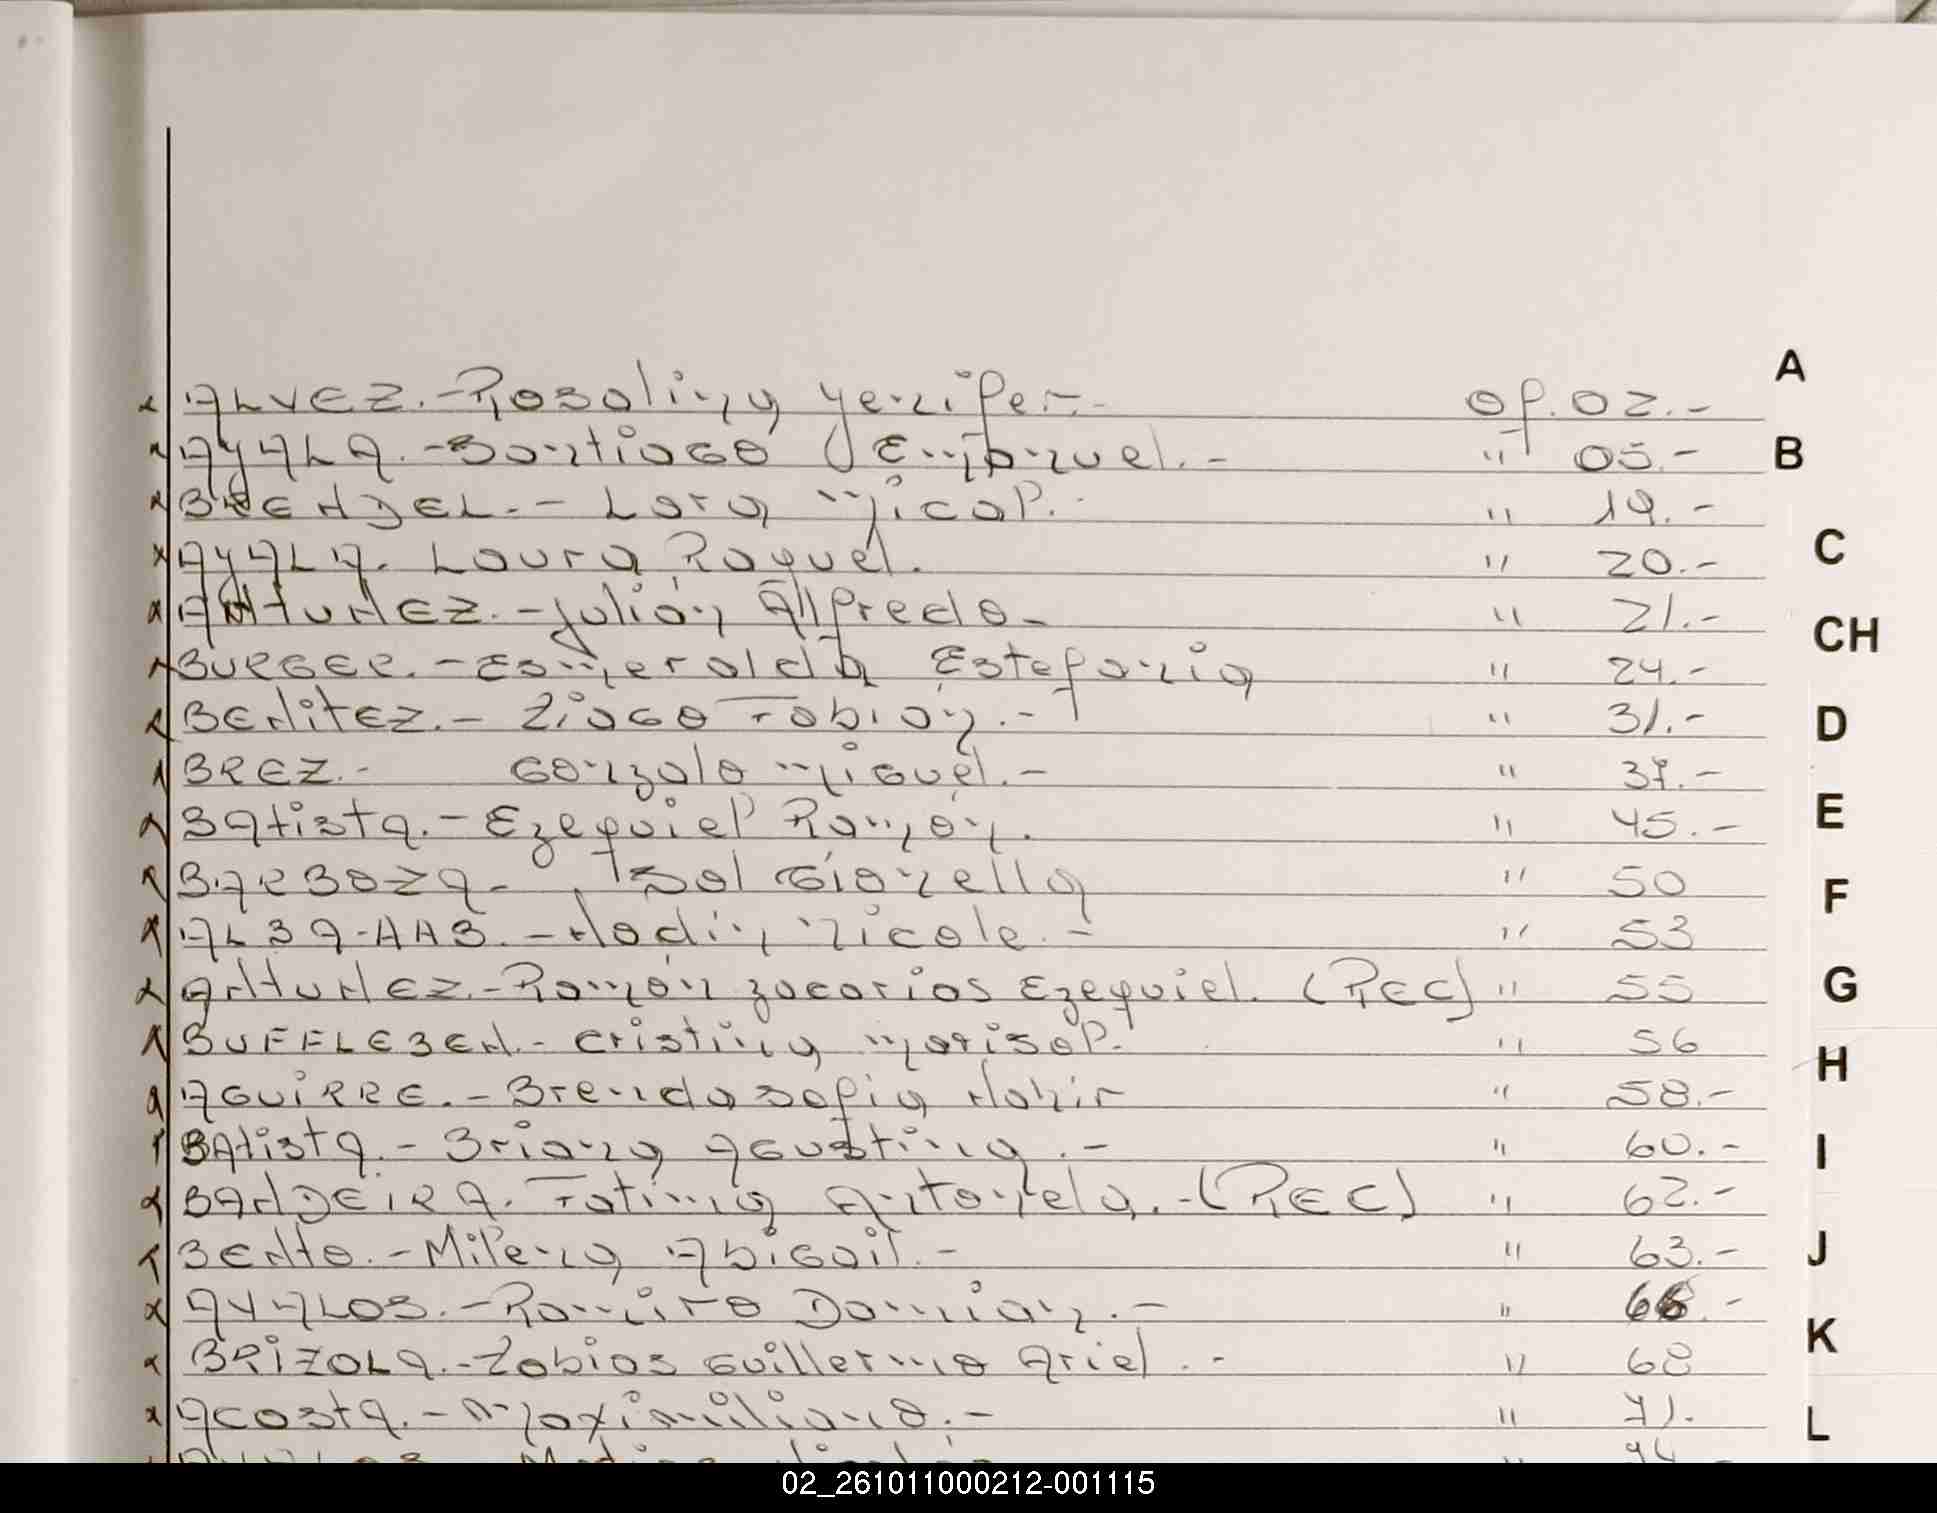 ALVEZ.- Rosalina Yenifer.-  of. 02.-
A
AYALA.- Santiago Emanuel.-  " 05.-
B
BRENDEL.- Lara Micol.  " 19.-
AYALA. Laura Raquel.  " 20.-
C
ANTUNEZ.- Julián Alfredo-  " 21.-
CH
BURGER.- Esmeralda Estefania  " 24.-
BENitEZ.- Ziago Fabian.-  " 31.-
D
BREZ.- Gonzalo Miguel.-  " 37.-
BAtistA.- Ezequiel Ramón.  " 45.-
E
BARBOZA- Sol Gionella  " 50
F
ALBA  - Nadin Nicole.-  " 53
ANtUNEZ.- Ramón Zacarias Ezequiel. (REC)  " 55
G
BUFFLEBEN.- Cristina Marisol.  " 56
H
AGUiRRE.- Brenda Sofia Nahir  " 58.-
BAtistA.- Briana Agustina.-  " 60.-
I
BANDEiRA. Fatima Antonela.-(REC)  " 62.-
BENto.- Milena Abigail.-  " 63.-
J
AYALOS.- Ramiro Damian.-  " 66.-
K
BRiZOLA.- Tobias Guillermo Ariel.-  " 68
ACOStA.- Maximiliano.-  " 71.
L
" 74 -
02_261011000212-001115